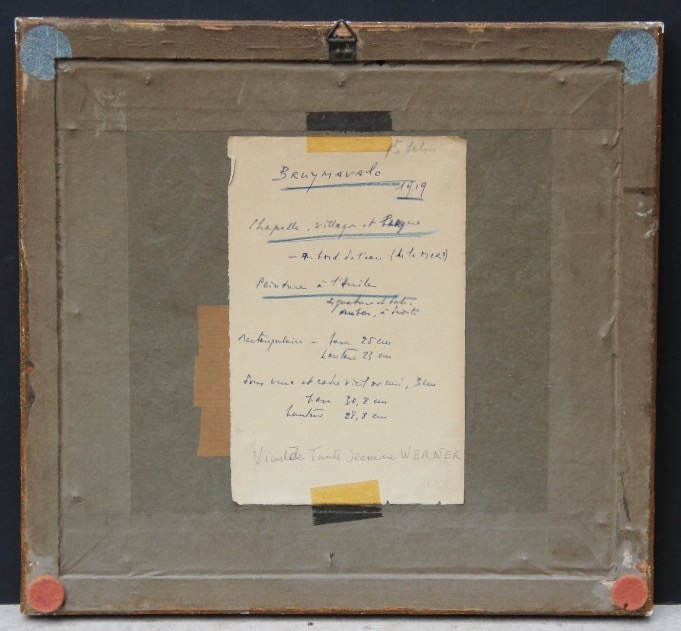 Pt Salon
BRUYMAVALO
1919
Chapelle, village et barque
— Au bord de l'eau (de la MER?)
Peinture à l'Huile
Signature et Date
à droite
Rectangulaire — base 25 cm
hauteur 23 cm
Sous verre et cadre vieil or uni, 3 cm
base 30,8 cm
hauteur 28,8 cm
Vient de Tante Jeanine WERNER